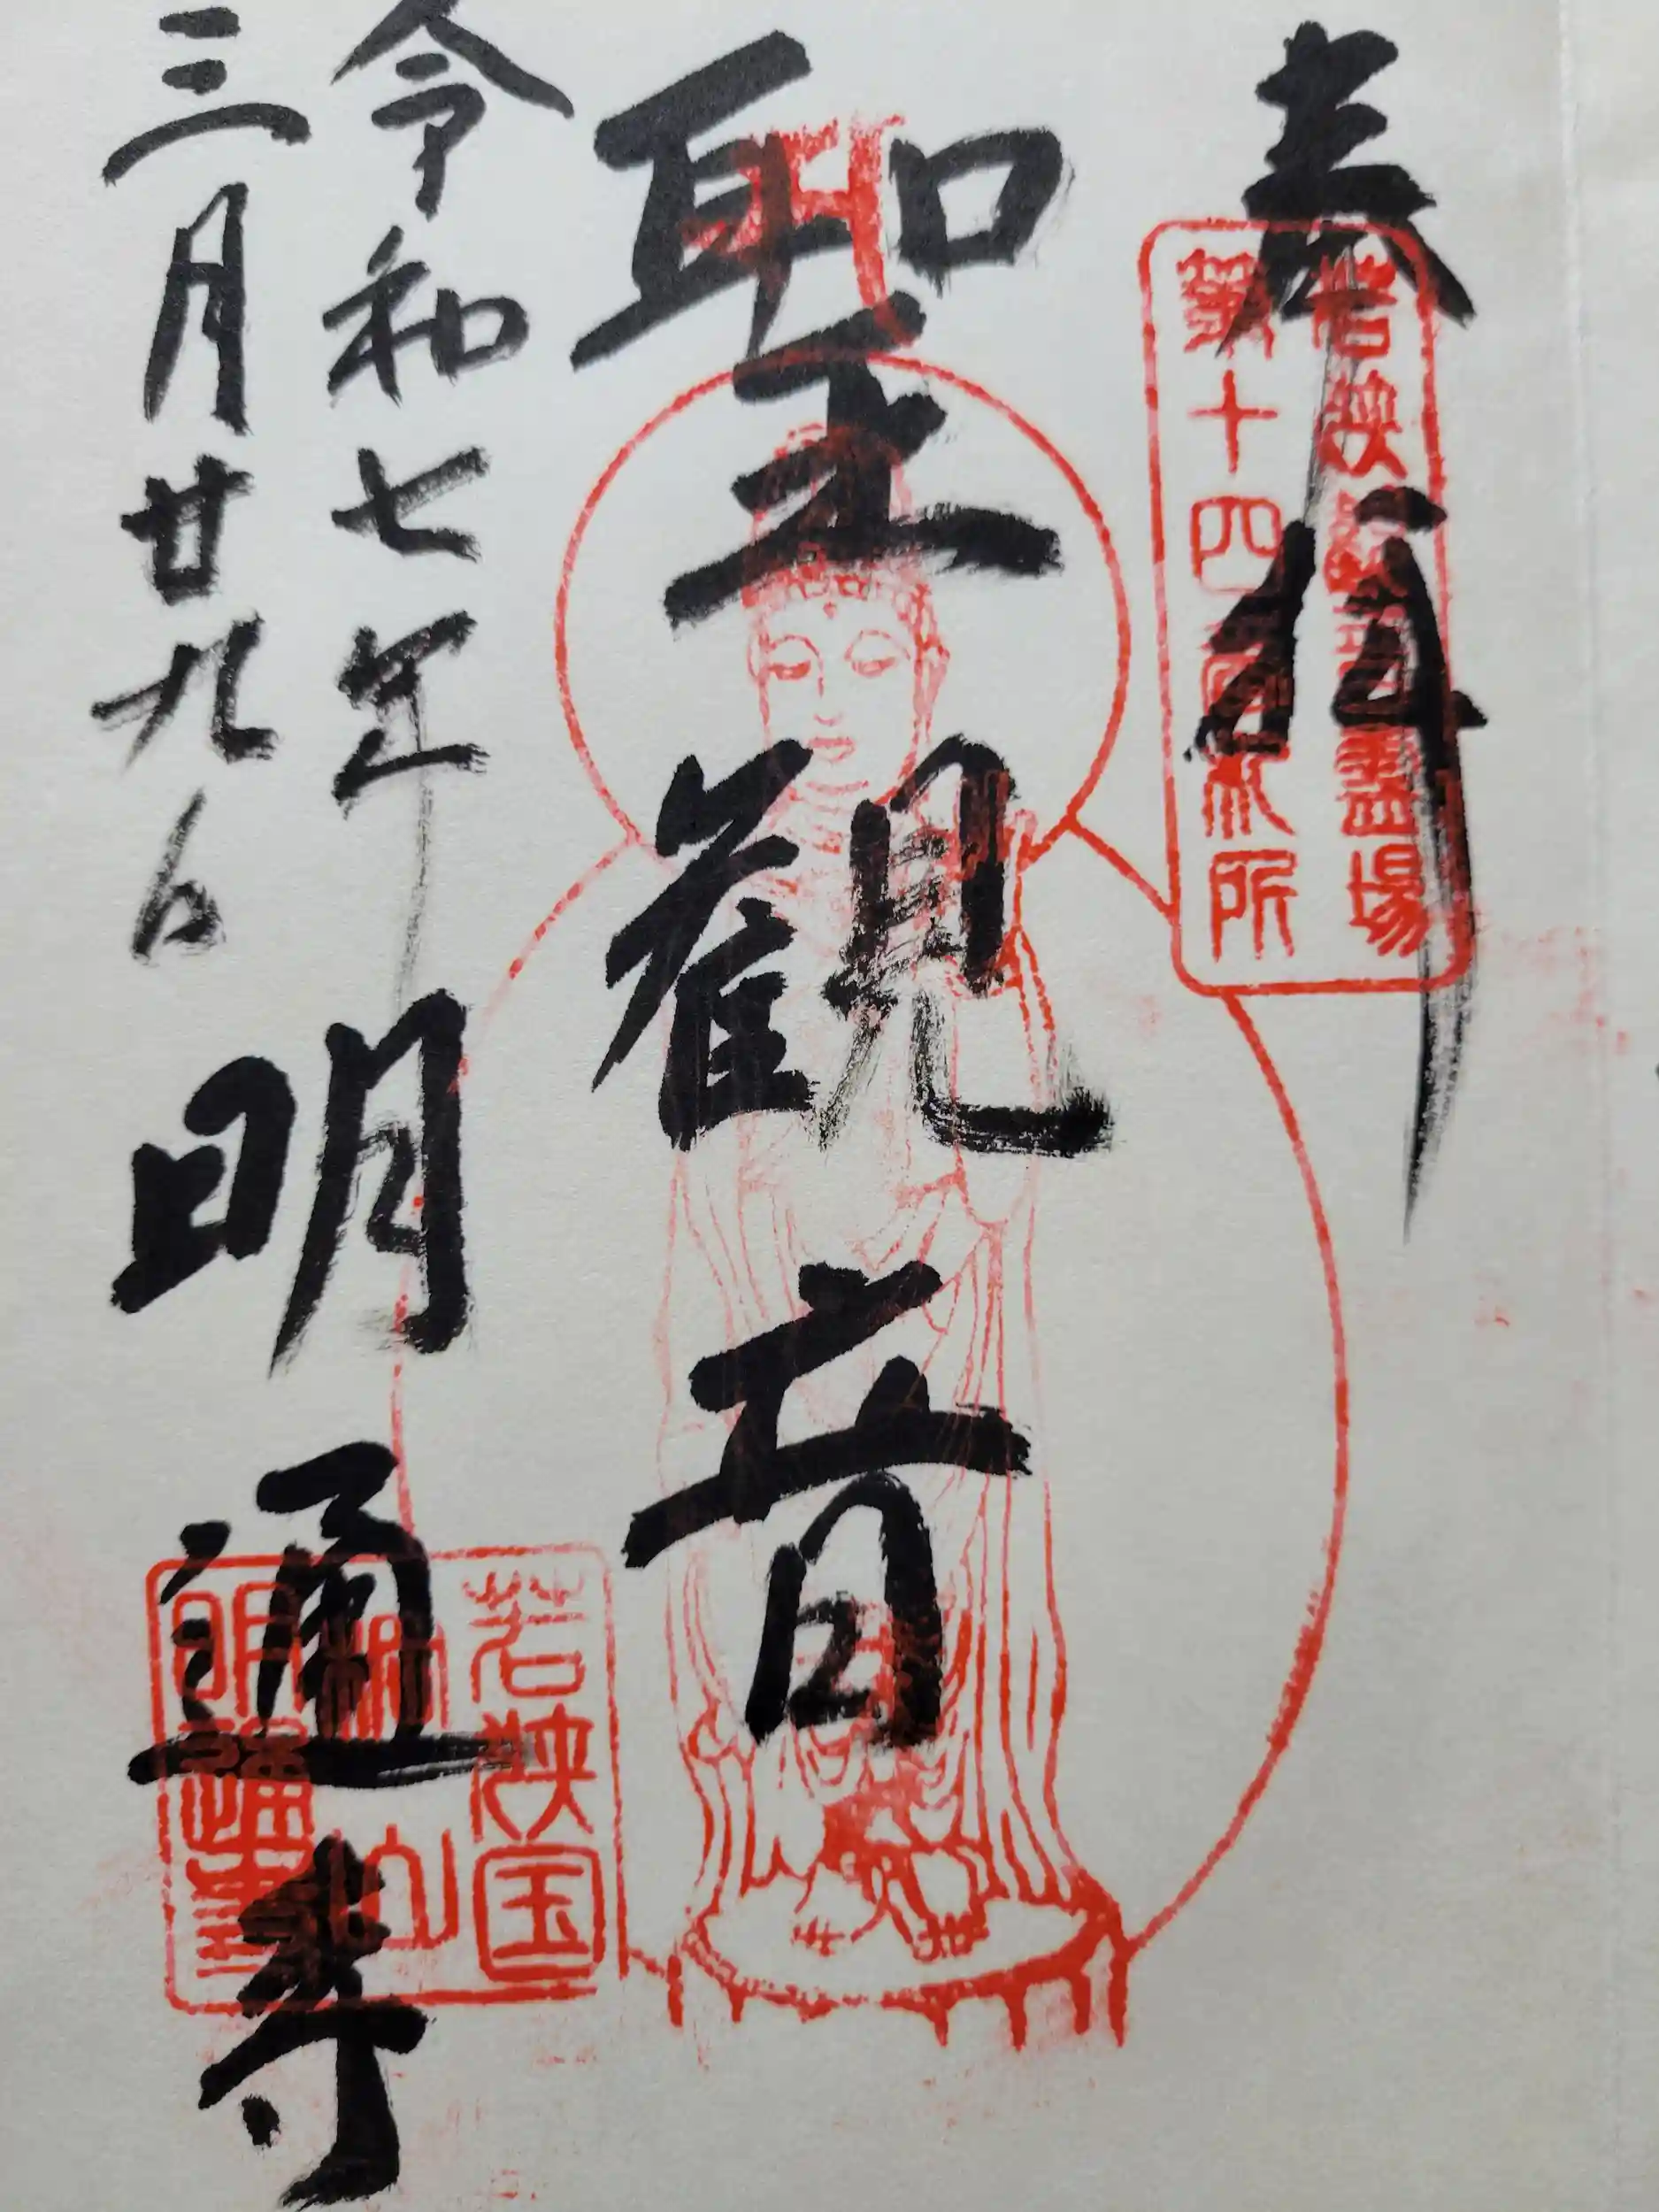 奉拝
若狭観音霊場
第十四番札所
聖観音
令和七年
三月廿九日
明通寺
若狭国
棡山
明通寺